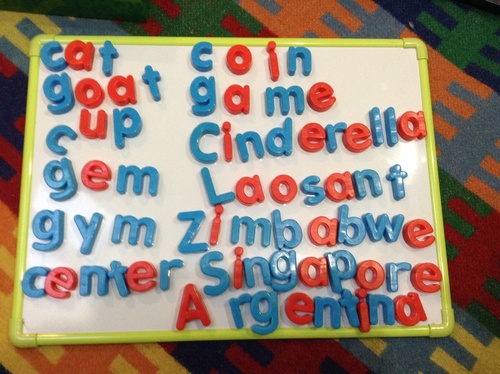 cat coin
goat game
cup Cinderella
gem Laosant
gym Zimbabwe
center Singapore
Argentina